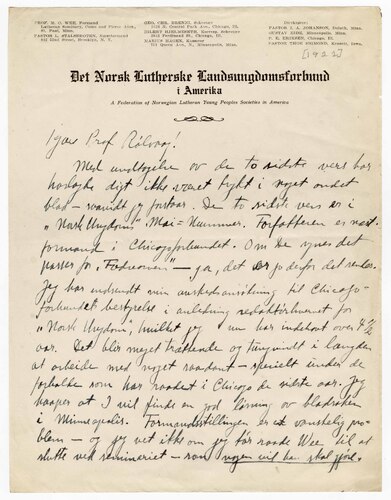 PROF. M. O. WEE, Formand
Lutheran Seminary, Como and Pierce Aves.,
St. Paul, Minn.
PASTOR L. STALSBROTEN, Næstformand
542 52nd Street, Brooklyn, N. Y.
GEO. CHR. BRENNI, Sekretær
N. Central Park Ave., Chicago, Ill.
Ferdinand St., Chicago, Ill.
Queen Ave., N., Minneapolis, Minn.
Direktører:
PASTOR J. A. JOHANSON, Duluth, Minn.
GUSTAV EIDE, Minneapolis, Minn.
P. K. ERIKSEN, Chicago, Ill.
[1922]
Det Norsk Lutherske Landsungdomsforbund
i Amerika
A Federation of Norwegian Lutheran Young Peoples Societies in America
Kjære Prof. Rölvaag!
Med undtagelse av de to sidste vers har
digt ikke været trykt i noget andet
blad — saavidt jeg forstaar. De to sidste vers er i
"Norsk Ungdoms" Mai-Nummer. Forfatteren er næst-
formand i Chicagoforbundet. Om De synes det
passer for — ja, det er jo derfor det sendes.
Jeg har indsendt min avskedsansökning til Chicago-
forbundets bestyrelse i anledning redaktörhvervet for
"Norsk Ungdom", hvilket jeg nu har indehavt over 4 1/2
aar. Det blir meget trættende og tungvindt i længden
at arbeide med noget saadant — specielt under de
forholde som har raadet i Chicago de sidste aar. Jeg
haaper at I vil finde en god lösning av bladsaken
i Minneapolis. Formandsstillingen er et vanskelig pro-
blem — og jeg vet ikke om jeg tör raade Wee til at
slutte ved seminariet — som nogen vil han skal gjöre.